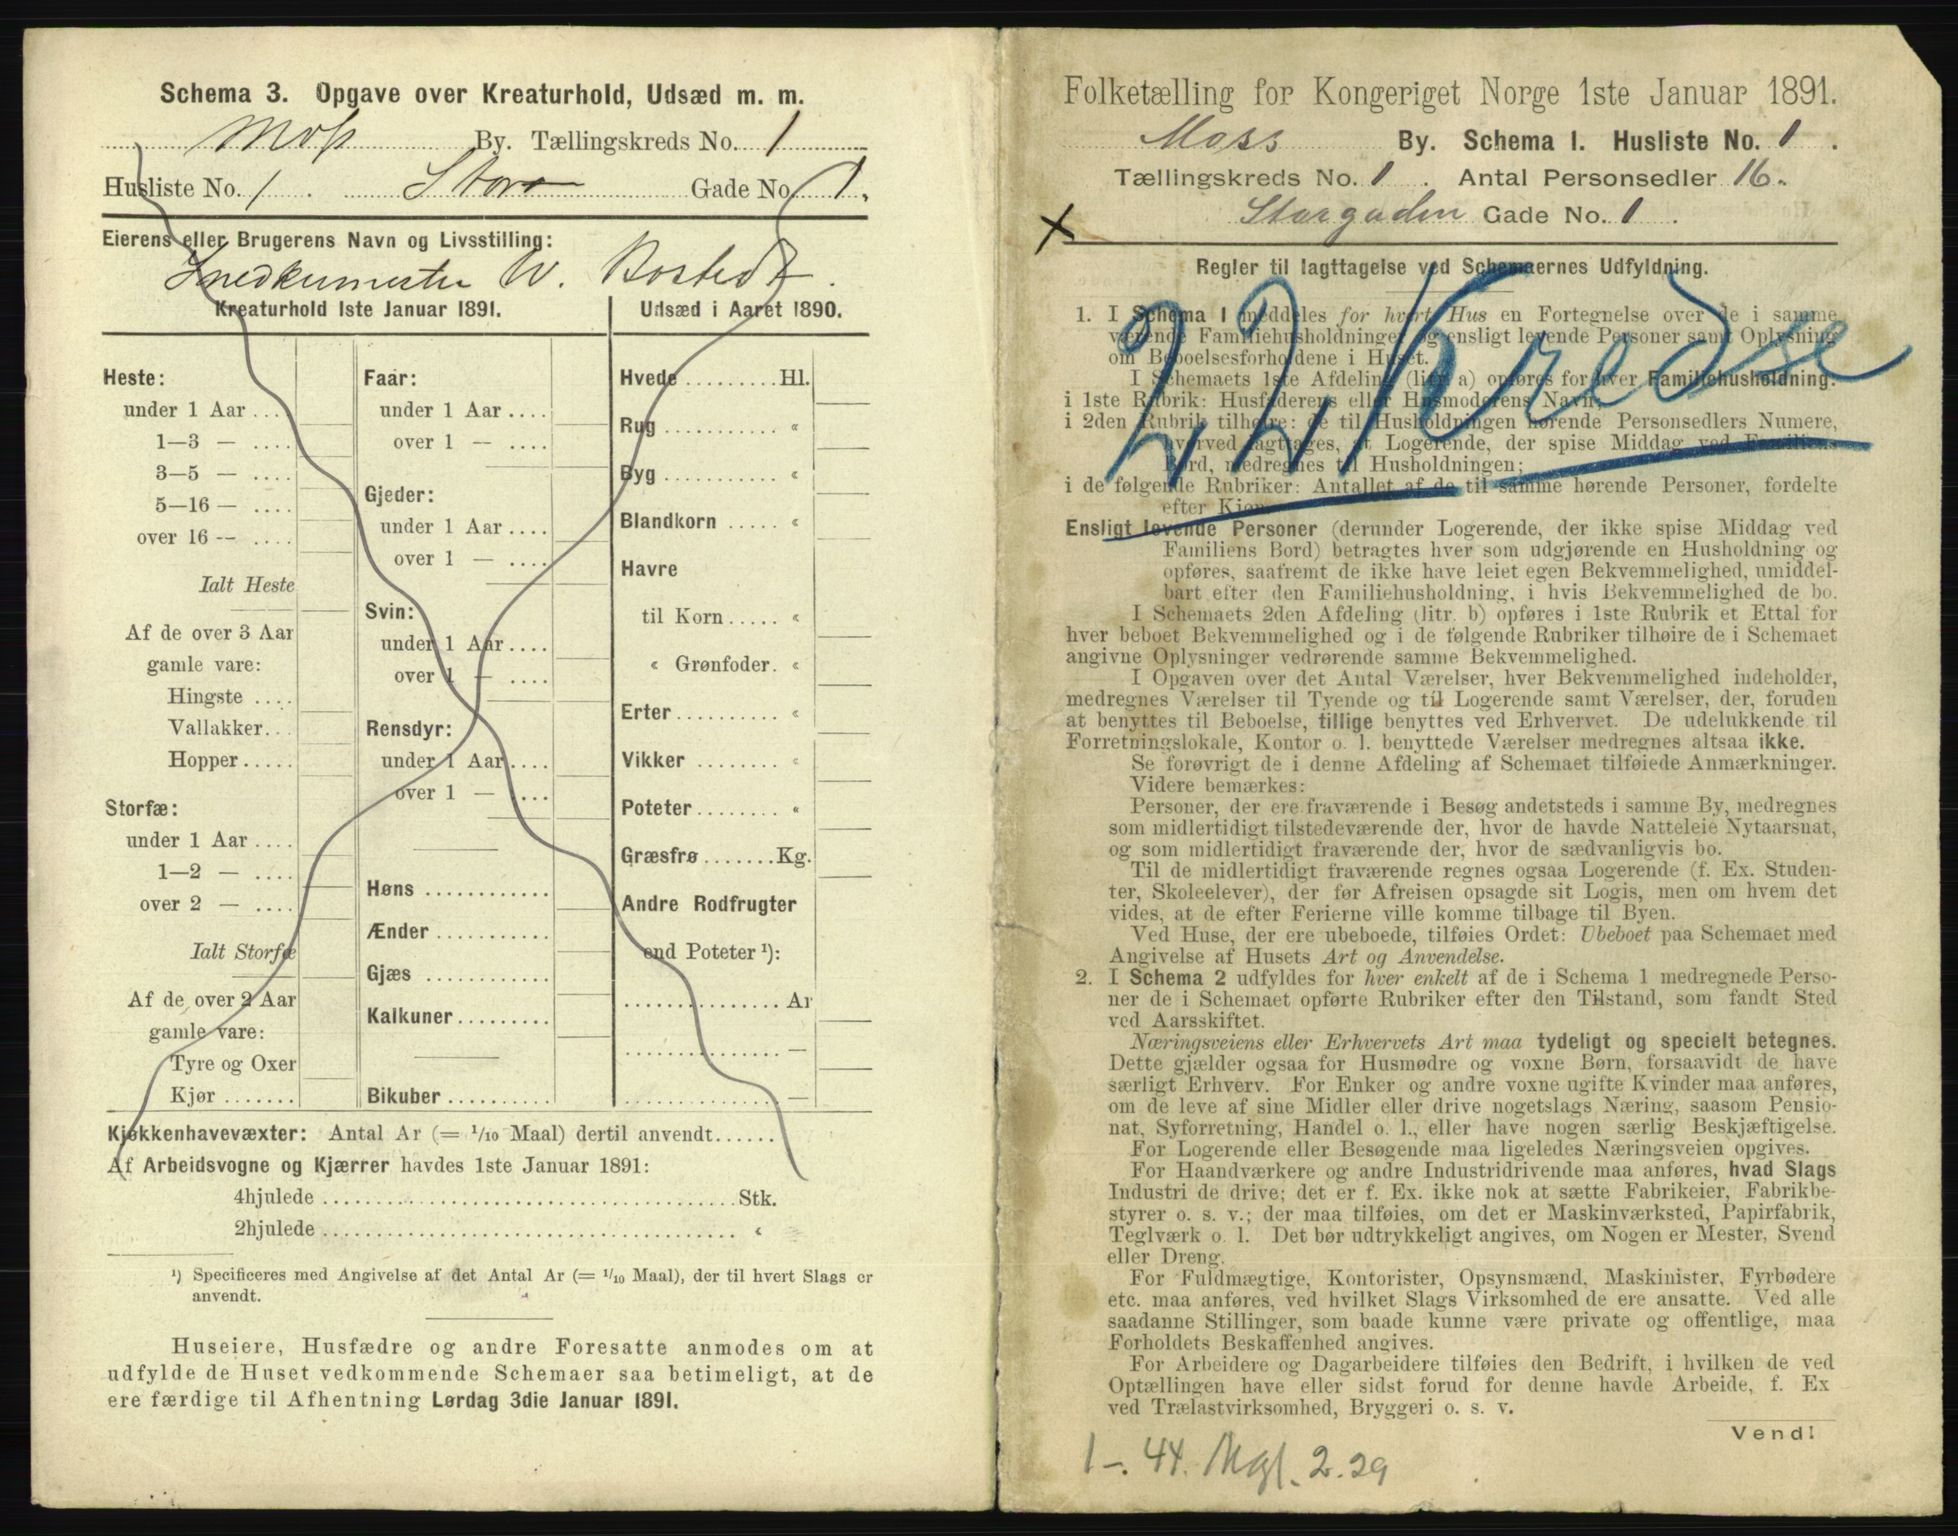 Schema 3. Opgave over Kreaturhold, Udsæd m. m.
Moss By. Tællingskreds No. 1
Husliste No. 1. Stor Gade No. 1.
Eierens eller Brugerens Navn og Livsstilling:
Snedkermester W. Bostedt.
Kreaturhold 1ste Januar 1891.
Heste:
under 1 Aar ....
1—3 — ....
3—5 — ....
5—16 — ....
over 16 -- ....
Ialt Heste
Af de over 3 Aar
gamle vare:
Hingste ....
Vallakker...
Hopper.....
Storfæ:
under 1 Aar ....
1—2 — ....
over 2 — ....
Ialt Storfæ
Af de over 2 Aar
gamle vare:
Tyre og Oxer
Kjør .......
Faar:
under 1 Aar ....
over 1 — ....
Gjeder:
under 1 Aar ....
over 1 — ....
Svin:
under 1 Aar....
over 1 — ....
Rensdyr:
under 1 Aar....
over 1 — ....
Høns ...........
Ænder...........
Gjæs ...........
Kalkuner.........
Bikuber ..........
Udsæd i Aaret 1890.
Hvede .......... Hl.
Rug ............ «
Byg ............ «
Blandkorn ...... «
Havre
til Korn ..... «
« Grønfoder. «
Erter.......... «
Vikker ........ «
Poteter........ «
Græsfrø .......Kg.
Andre Rodfrugter
end Poteter ¹):
............... Ar
............... —
............... —
Kjøkkenhavevæxter: Antal Ar (= 1/10 Maal) dertil anvendt......
Af Arbeidsvogne og Kjærrer havdes 1ste Januar 1891:
4hjulede ........................................ Stk.
2hjulede ........................................ «
¹) Specificeres med Angivelse af det Antal Ar (= 1/10 Maal), der til hvert Slags er
anvendt.
Huseiere, Husfædre og andre Foresatte anmodes om at
udfylde de Huset vedkommende Schemaer saa betimeligt, at de
ere færdige til Afhentning Lørdag 3die Januar 1891.
Folketælling for Kongeriget Norge 1ste Januar 1891.
Moss By. Schema I. Husliste No. 1.
Tællingskreds No. 1. Antal Personsedler 16.
x Storgaden Gade No. 1.
Regler til Iagttagelse ved Schemaernes Udfyldning.
22 Kredse
1. I Schema 1 meddeles for hvert Hus en Fortegnelse over de i samme
værende Familiehusholdninger og ensligt levende Personer samt Oplysning
om Beboelsesforholdene i Huset.
I Schemaets 1ste Afdeling (litr. a) opføres for hver Familiehusholdning:
i 1ste Rubrik: Husfaderens eller Husmoderens Navn,
i 2den Rubrik tilhøire: de til Husholdningen hørende Personsedlers Numere,
hvorved iagttages, at Logerende, der spise Middag ved Familiens
Bord, medregnes til Husholdningen;
i de følgende Rubriker: Antallet af de til samme hørende Personer, fordelte
efter Kjøn.
Ensligt levende Personer (derunder Logerende, der ikke spise Middag ved
Familiens Bord) betragtes hver som udgjørende en Husholdning og
opføres, saafremt de ikke have leiet egen Bekvemmelighed, umiddel-
bart efter den Familiehusholdning, i hvis Bekvemmelighed de bo.
I Schemaets 2den Afdeling (litr. b) opføres i 1ste Rubrik et Ettal for
hver beboet Bekvemmelighed og i de følgende Rubriker tilhøire de i Schemaet
angivne Oplysninger vedrørende samme Bekvemmelighed.
I Opgaven over det Antal Værelser, hver Bekvemmelighed indeholder,
medregnes Værelser til Tyende og til Logerende samt Værelser, der, foruden
at benyttes til Beboelse, tillige benyttes ved Erhvervet. De udelukkende til
Forretningslokale, Kontor o. l. benyttede Værelser medregnes altsaa ikke.
Se forøvrigt de i denne Afdeling af Schemaet tilføiede Anmærkninger.
Videre bemærkes:
Personer, der ere fraværende i Besøg andetsteds i samme By, medregnes
som midlertidigt tilstedeværende der, hvor de havde Natteleie Nytaarsnat,
og som midlertidigt fraværende der, hvor de sædvanligvis bo.
Til de midlertidigt fraværende regnes ogsaa Logerende (f. Ex. Studen-
ter, Skoleelever), der før Afreisen opsagde sit Logis, men om hvem det
vides, at de efter Ferierne ville komme tilbage til Byen.
Ved Huse, der ere ubeboede, tilføies Ordet: Ubeboet paa Schemaet med
Angivelse af Husets Art og Anvendelse.
2. I Schema 2 udfyldes for hver enkelt af de i Schema 1 medregnede Perso-
ner de i Schemaet opførte Rubriker efter den Tilstand, som fandt Sted
ved Aarsskiftet.
Næringsveiens eller Erhvervets Art maa tydeligt og specielt betegnes.
Dette gjælder ogsaa for Husmødre og voxne Børn, forsaavidt de have
særligt Erhverv. For Enker og andre voxne ugifte Kvinder maa anføres,
om de leve af sine Midler eller drive nogetslags Næring, saasom Pensio-
nat, Syforretning, Handel o. l., eller have nogen særlig Beskjæftigelse.
For Logerende eller Besøgende maa ligeledes Næringsveien opgives.
For Haandværkere og andre Industridrivende maa anføres, hvad Slags
Industri de drive; det er f. Ex. ikke nok at sætte Fabrikeier, Fabrikbe-
styrer o. s. v.; der maa tilføies, om det er Maskinværksted, Papirfabrik,
Teglværk o. l. Det bør udtrykkeligt angives, om Nogen er Mester, Svend
eller Dreng.
For Fuldmægtige, Kontorister, Opsynsmænd, Maskinister, Fyrbødere
etc. maa anføres, ved hvilket Slags Virksomhed de ere ansatte. Ved alle
saadanne Stillinger, som baade kunne være private og offentlige, maa
Forholdets Beskaffenhed angives.
For Arbeidere og Dagarbeidere tilføies den Bedrift, i hvilken de ved
Optællingen have eller sidst forud for denne havde Arbeide, f. Ex
ved Trælastvirksomhed, Bryggeri o. s. v.
Vend!
1-. 44. Mgl. 2. 29